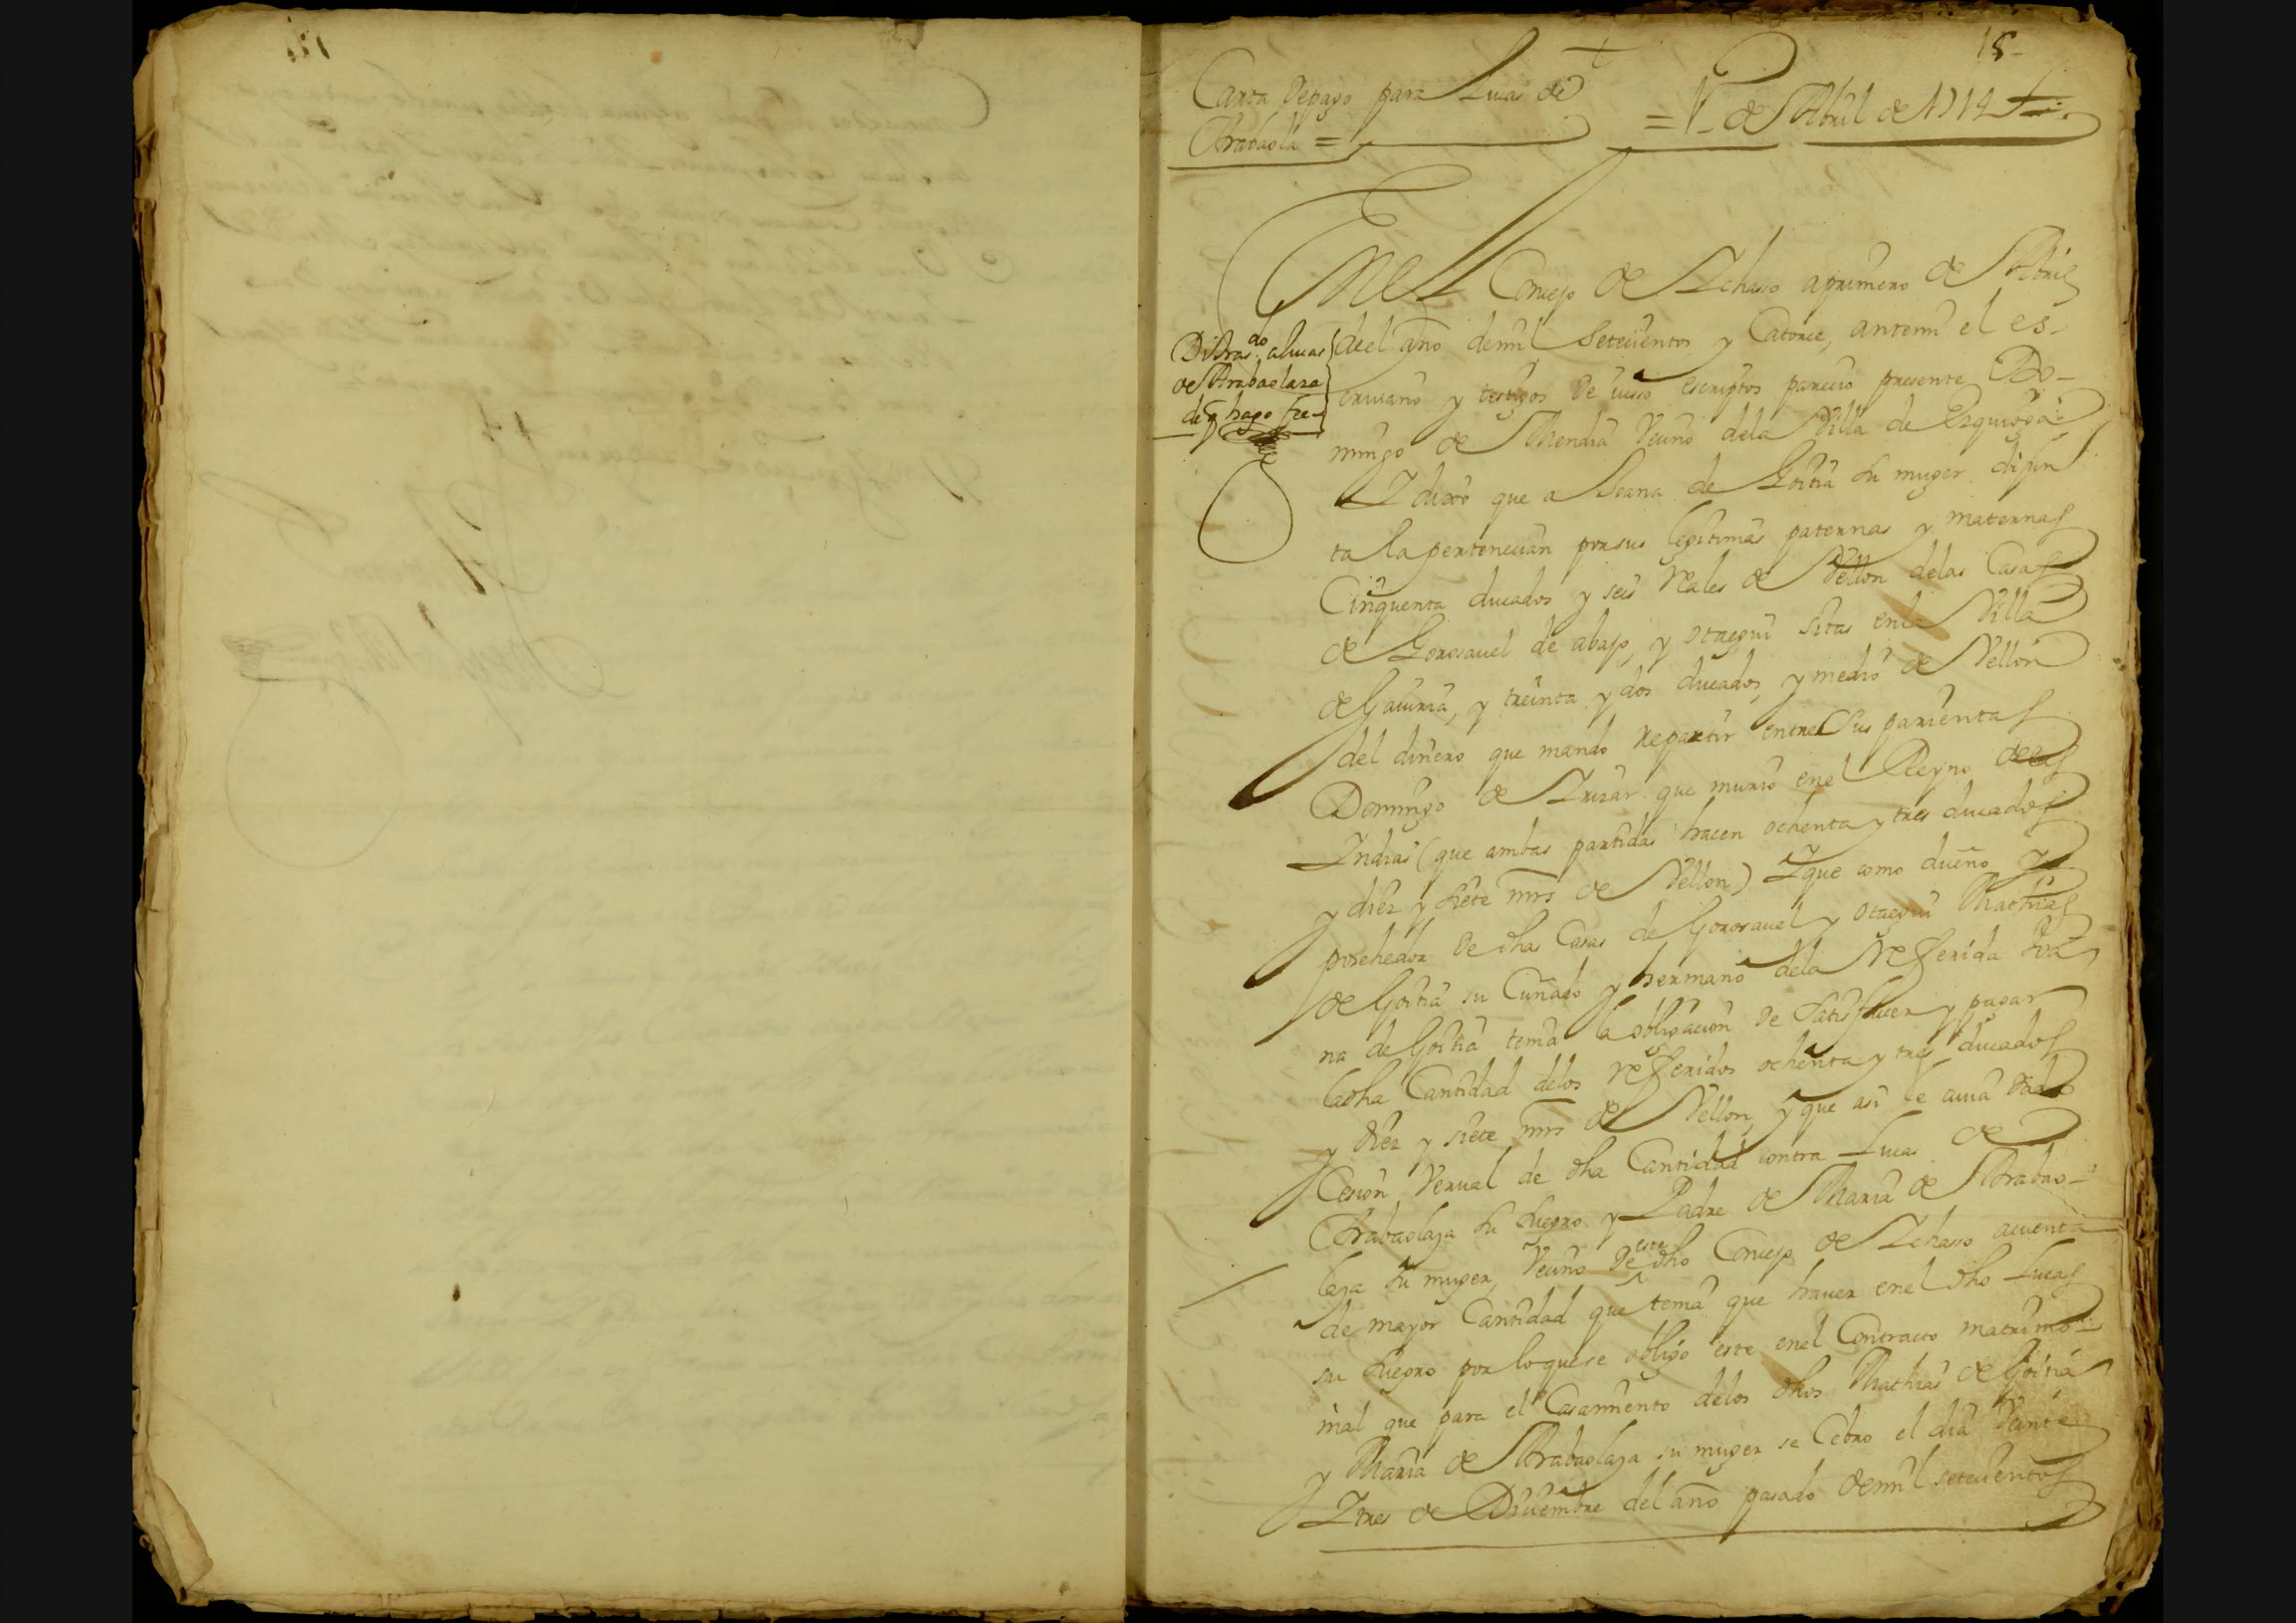 18
Carta de pago para Lucas de
Arabaola =
= 1º de Abril de 1714
En el Concejo de Ychaso a primero de Abril
Di tras.do a lucas
de Arabaolaza
de q hago fee
de el año de mil setecientos y Catorce, ante mi el es-
crivano y testigos de iusso escriptos parecio presente Do-
mingo de Mendia Vecino dela Villa de Ezquioga
Y dixo que a Joana de Goitia su muger difun
ta la pertenecian por sus lexitimas paternas y maternas
Cinquenta ducados y seis reales de Vellon delas Casas
de Gorosauel de abajo, y otaegui sitas en la Villa
de Gauiria, y treinta y dos ducados, y medio de Vellon
del dinero que mando repartir entre sus parientas
Domingo de Yrizar que murio en el Reyno de las
Yndias (que ambas partidas hacen ochenta y tres ducados
y diez y siete mrs de Vellon) Y que como dueño y
posehedor de dhas Casas de Gorosauel y otaegui Mathias
de Goitia su Cuñado y hermano dela referida Joa
na de Goitia tenia la obligacion de satisfacer y pagar
la dha Cantidad delos referidos ochenta y tres ducados
y diez y siete mrs de Vellon, y que asi le auia dado
Cesion Verual de dha Cantidad contra Lucas de
Arabaolaza su suegro y Padre de Maria de Arabao-
laza su muger, Vecino de este dho Concejo de Ychaso a cuenta
de mayor Cantidad que tenia que hauer en el dho Lucas
su suegro por lo que se obligo este en el Contracto matrimo-
nial que para el Casamiento delos dhos Mathias de Goitia
y Maria de Arabaolaza su muger se Cebro el dia Veinte
Y tres de Diciembre del año pasado de mil setecientos